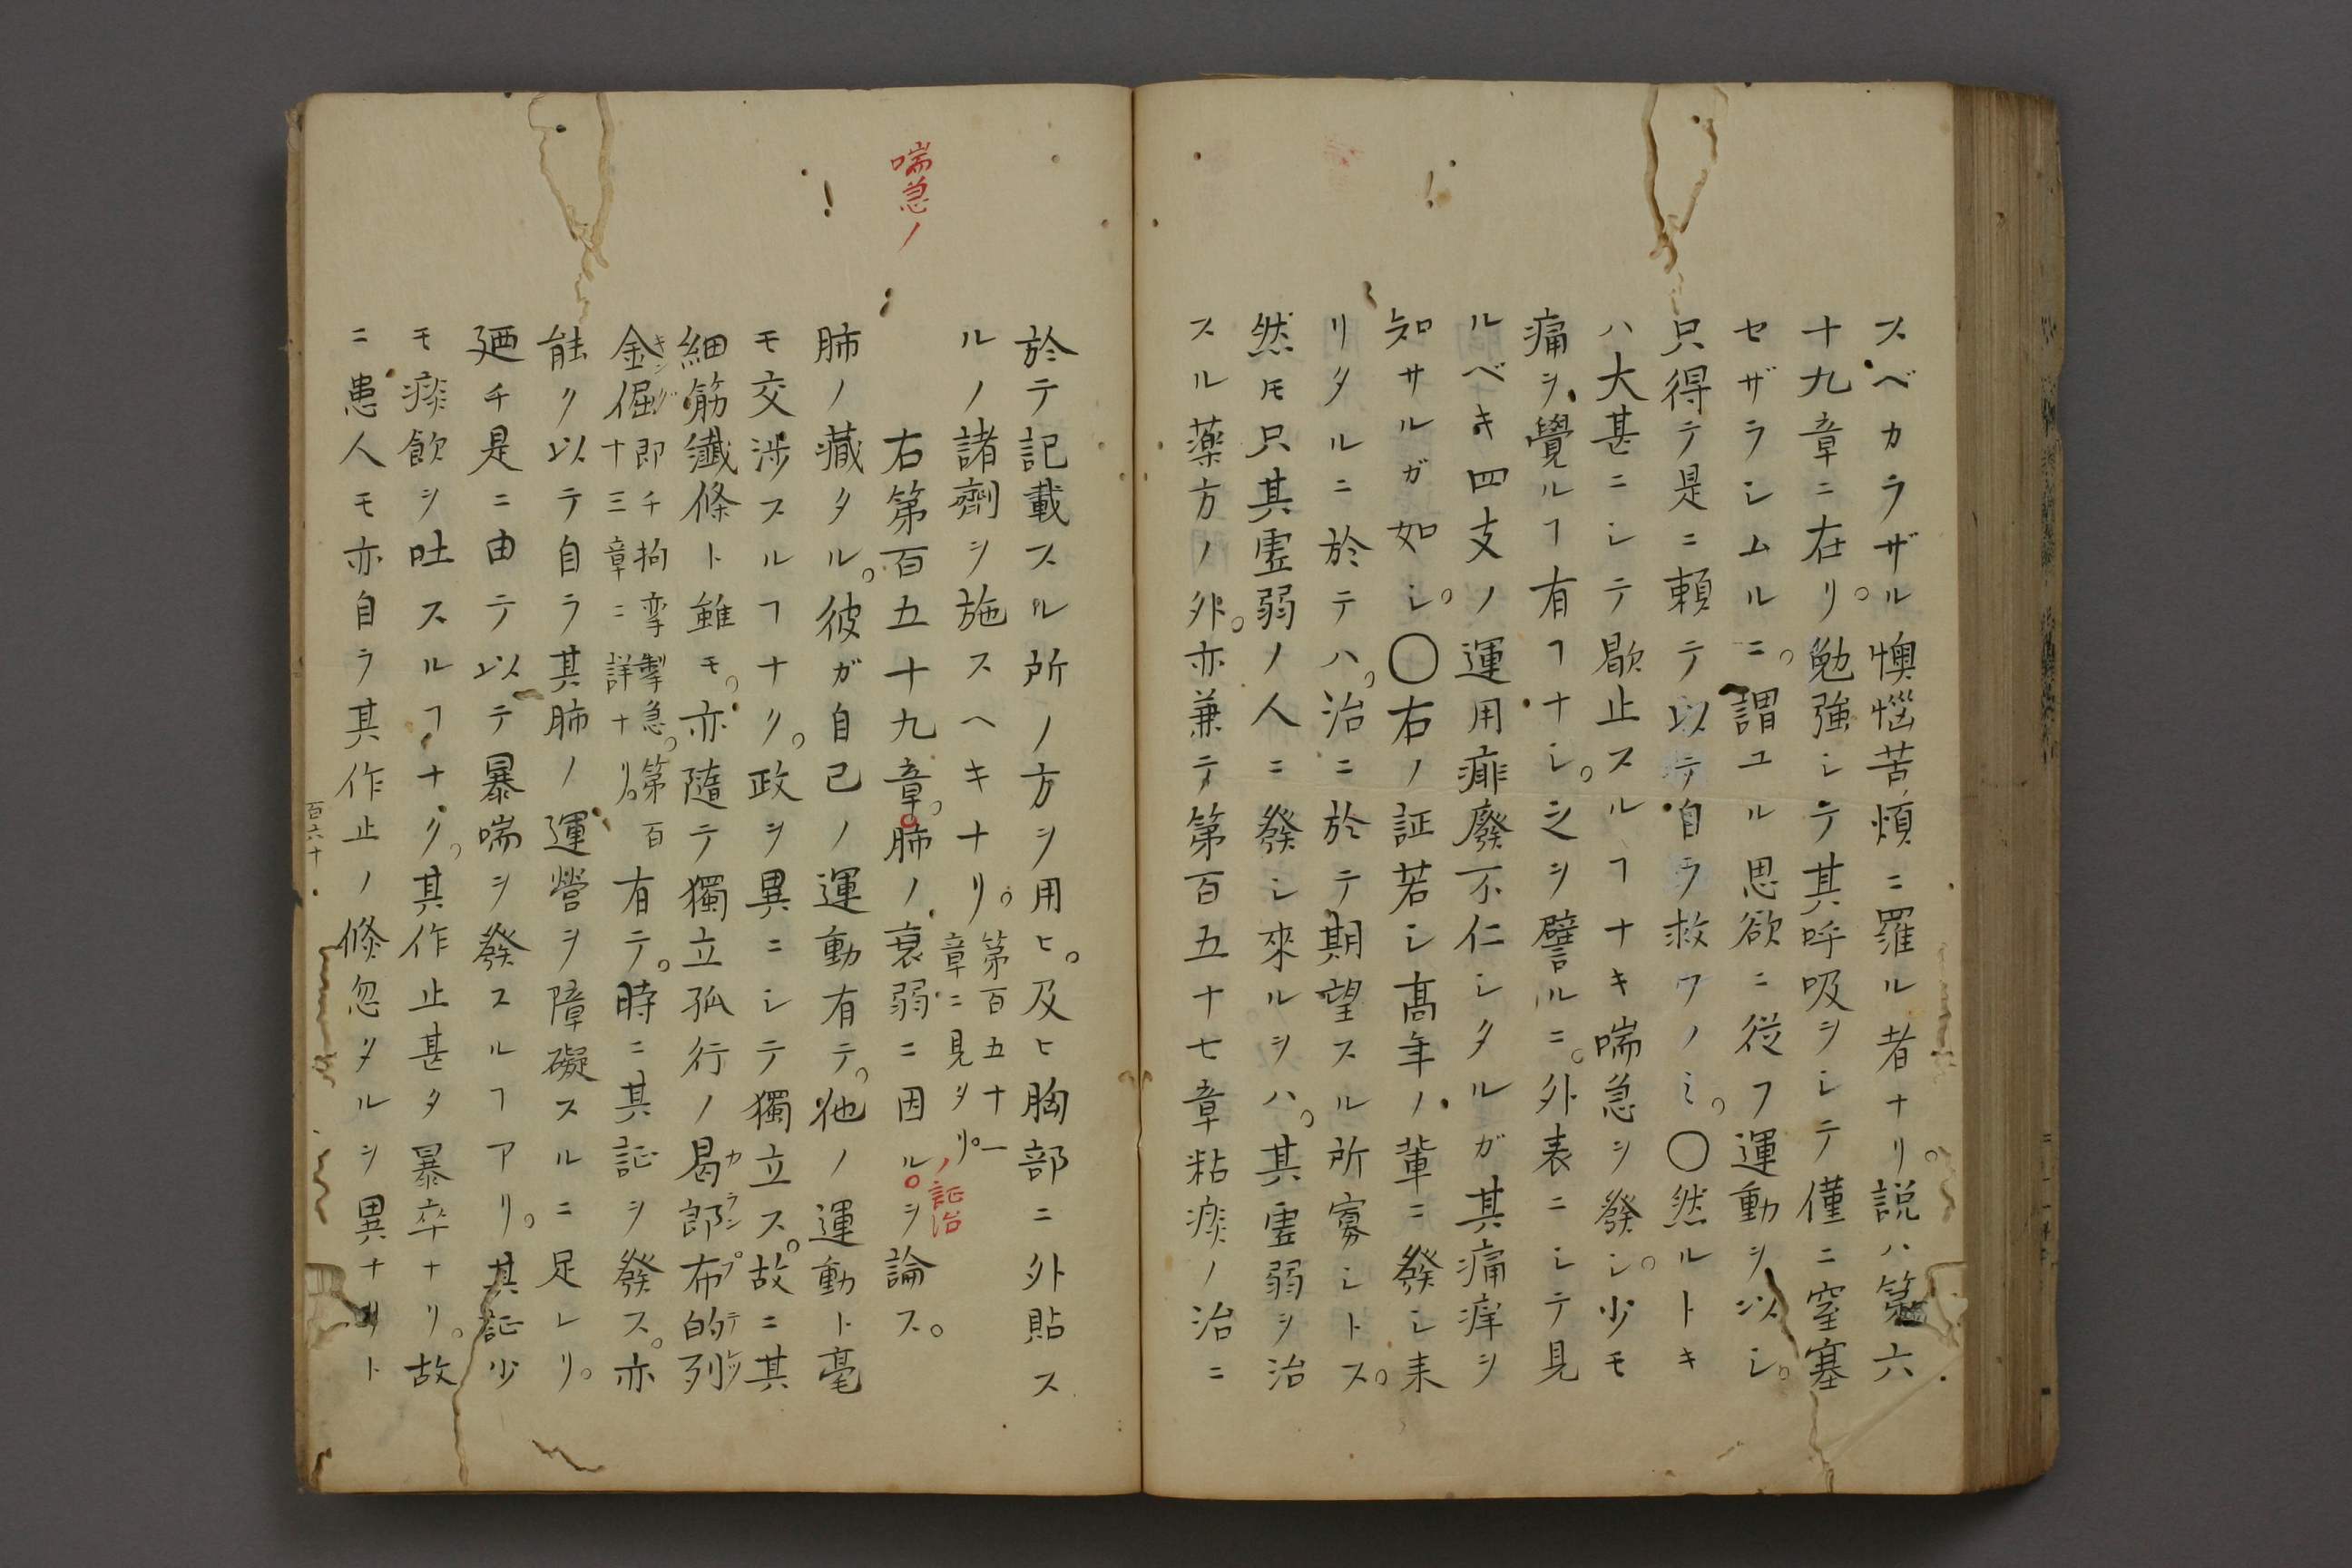 スベカラザル懊惱苦煩ニ羅ル者ナリ。説ハ第六
十九章ニ在リ。勉強シテ其呼吸ヲシテ僅ニ窒塞
セザラシムルニ。謂ユル思欲ニ従フ運動ヲ以シ。
只得テ是ニ頼テ以テ自ラ救フノミ。〇然ルトキ
ハ大甚ニシテ歇止スルヿナキ喘急ヲ發シ。少モ
痛ヲ覺ルヿ有ヿナシ。之ヲ譬ルニ。外表ニシテ見
ルベキ四支ノ運用痱廢不仁シタルガ其痛痒ヲ
知サルガ如シ。〇右ノ証若シ高年ノ輩ニ發シ来
リタルニ於テハ。治ニ於テ期望スル所寡シトス。
然𪜈只其虚弱ノ人ニ發シ來ルヲハ。其虚弱ヲ治
スル薬方ノ外。亦兼テ第百五十七章粘痰ノ治ニ
於テ記載スル所ノ方ヲ用ヒ。及ヒ胸部ニ外貼ス
ルノ諸劑ヲ施スヘキナリ。第百五十一章ニ見タリ。
右第百五十九章。肺ノ衰弱ニ因ル。ヲ論ス。
喘急ノ
ノ証治
肺ノ藏タル。彼ガ自己ノ運動有テ。他ノ運動ト毫
モ交渉スルヿナク。政ヲ異ニシテ獨立ス。故ニ其
細筋纎條ト雖モ。亦隨テ獨立孤行ノ曷郎布的列カランプテレツ
金倔キンゲ即チ拘攣掣急。第百十三章ニ詳ナリ。有テ。時ニ其証ヲ發ス。亦
能ク以テ自ラ其肺ノ運營ヲ障礙スルニ足レリ。
廼チ是ニ由テ以テ暴喘ヲ發スルヿアリ。其証少
モ痰飲ヲ吐スルヿナク。其作止甚タ暴卒ナリ。故
ニ患人モ亦自ラ其作止ノ倏忽タルヲ異ナリト
百六十